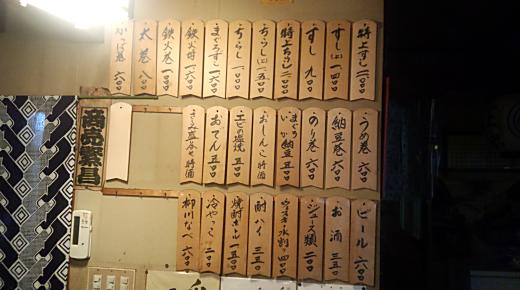 特上すし 二一〇〇
すし(上) 一四〇〇
すし 九〇〇
特上ちらし 二一〇〇
ちらし(上) 一、五〇〇
ちらし 一〇〇〇
まぐろすし 一六〇〇
鉄火丼 一六〇〇
鉄火巻 一六〇〇
太巻 八〇〇
かっぱ巻 六〇〇
うめ巻 六〇〇
納豆巻 六〇〇
のり巻 六〇〇
まぐろ いか 納豆 五〇〇
おしんこ 時価
エビの塩焼 五〇〇
おでん 五〇〇
さしみ盛合せ 時価
商売繁昌
ビール 六〇〇
お酒 三五〇
ジュース類 二〇〇
ウイスキー水割り 四〇〇
酎ハイ 三五〇
焼酎ボトル 一五〇〇
冷やっこ 二〇〇
柳川なべ 六〇〇